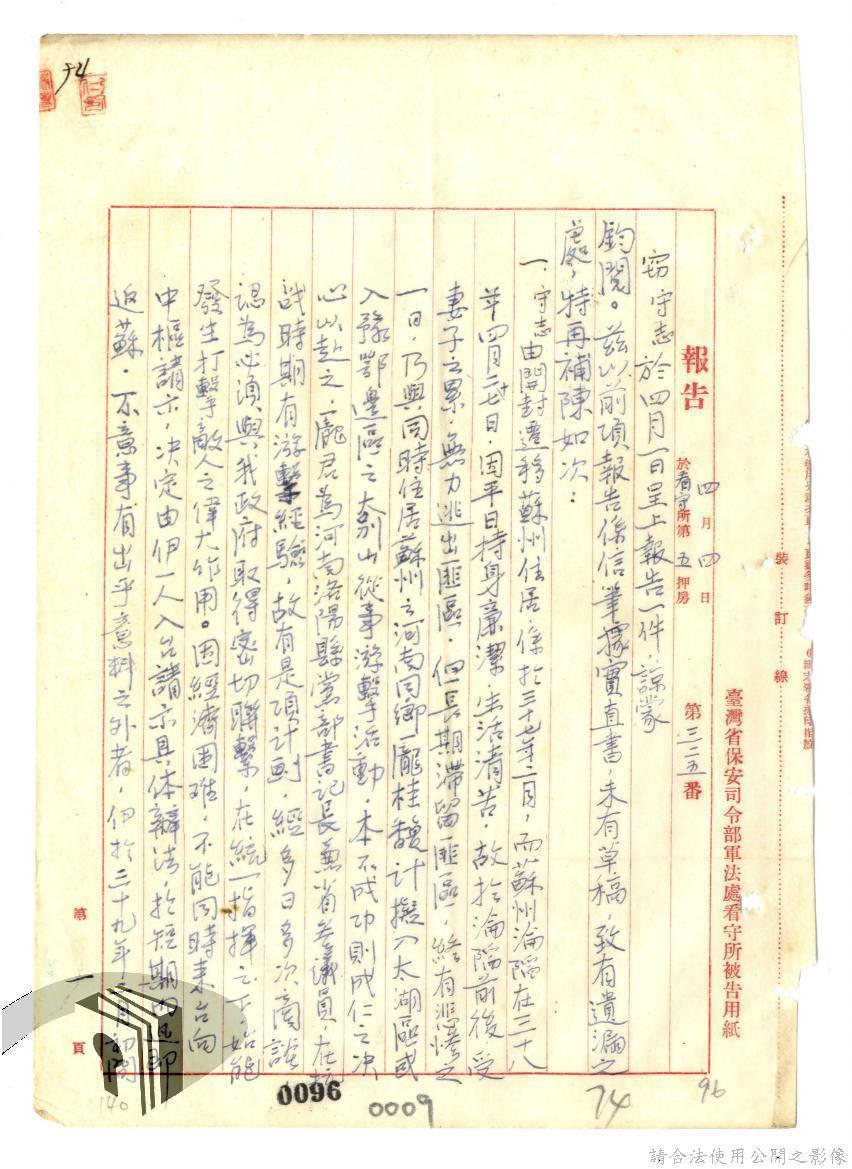 臺灣省保安司令部軍法處看守所被告用紙
裝訂線
報告
四月四日
於看守所第五押房
第三二五番
竊守志於四月一日呈上報告一件,諒蒙
鈞閱。茲以前項報告係信筆據實直書,未有草稿,致有遺漏之
處,特再補陳如次:
一、守志由開封遷移蘇州住居,係於三十七年二月,而蘇州淪陷在三十八
年四月廿七日,因平日持身廉潔,生活清苦,故於淪陷前後受
妻子之累,無力逃出匪區,但長期滯留匪區,終有悲慘之
一日,乃與同時住居蘇州之河南同鄉龐桂馥計擬入太湖區或
入豫鄂邊區之大別山從事游擊活動,本不成功則成仁之決
心以赴之,龐君為河南洛陽縣黨部書記長兼省參議員,在抗
戰時期有游擊經驗,故有是項計劃,經多日多次商談
認為必須與我政府取得密切聯繫,在統一指揮之下,始能
發生打擊敵人之偉大作用。因經濟困难,不能同時来台向
中樞請示,决定由伊一人入台請示具体辦法,於短期內迅即
返蘇。不意事有出乎意料之外者,伊於三十九年二月初間
第一頁
0096
0009
74
96
140
94
請合法使用公開之影像